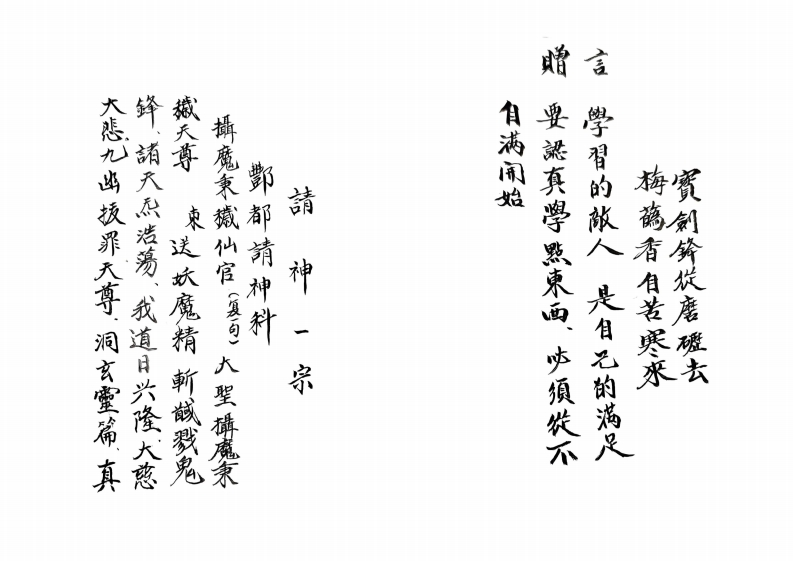 寶劍鋒從磨礪去
梅蕊香自苦寒來
贈言
學習的敵人 是自己的滿足
要認真學點東西、必須從不
自滿開始
請神一宗
酆都請神科
攝魔秉穢仙官(复一句)大聖攝魔秉
穢天尊 束送妖魔精 斬馘戮鬼
鋒、諸天炁浩蕩、我道日兴隆、大慈
大悲九幽拔罪天尊、洞玄靈篇、真